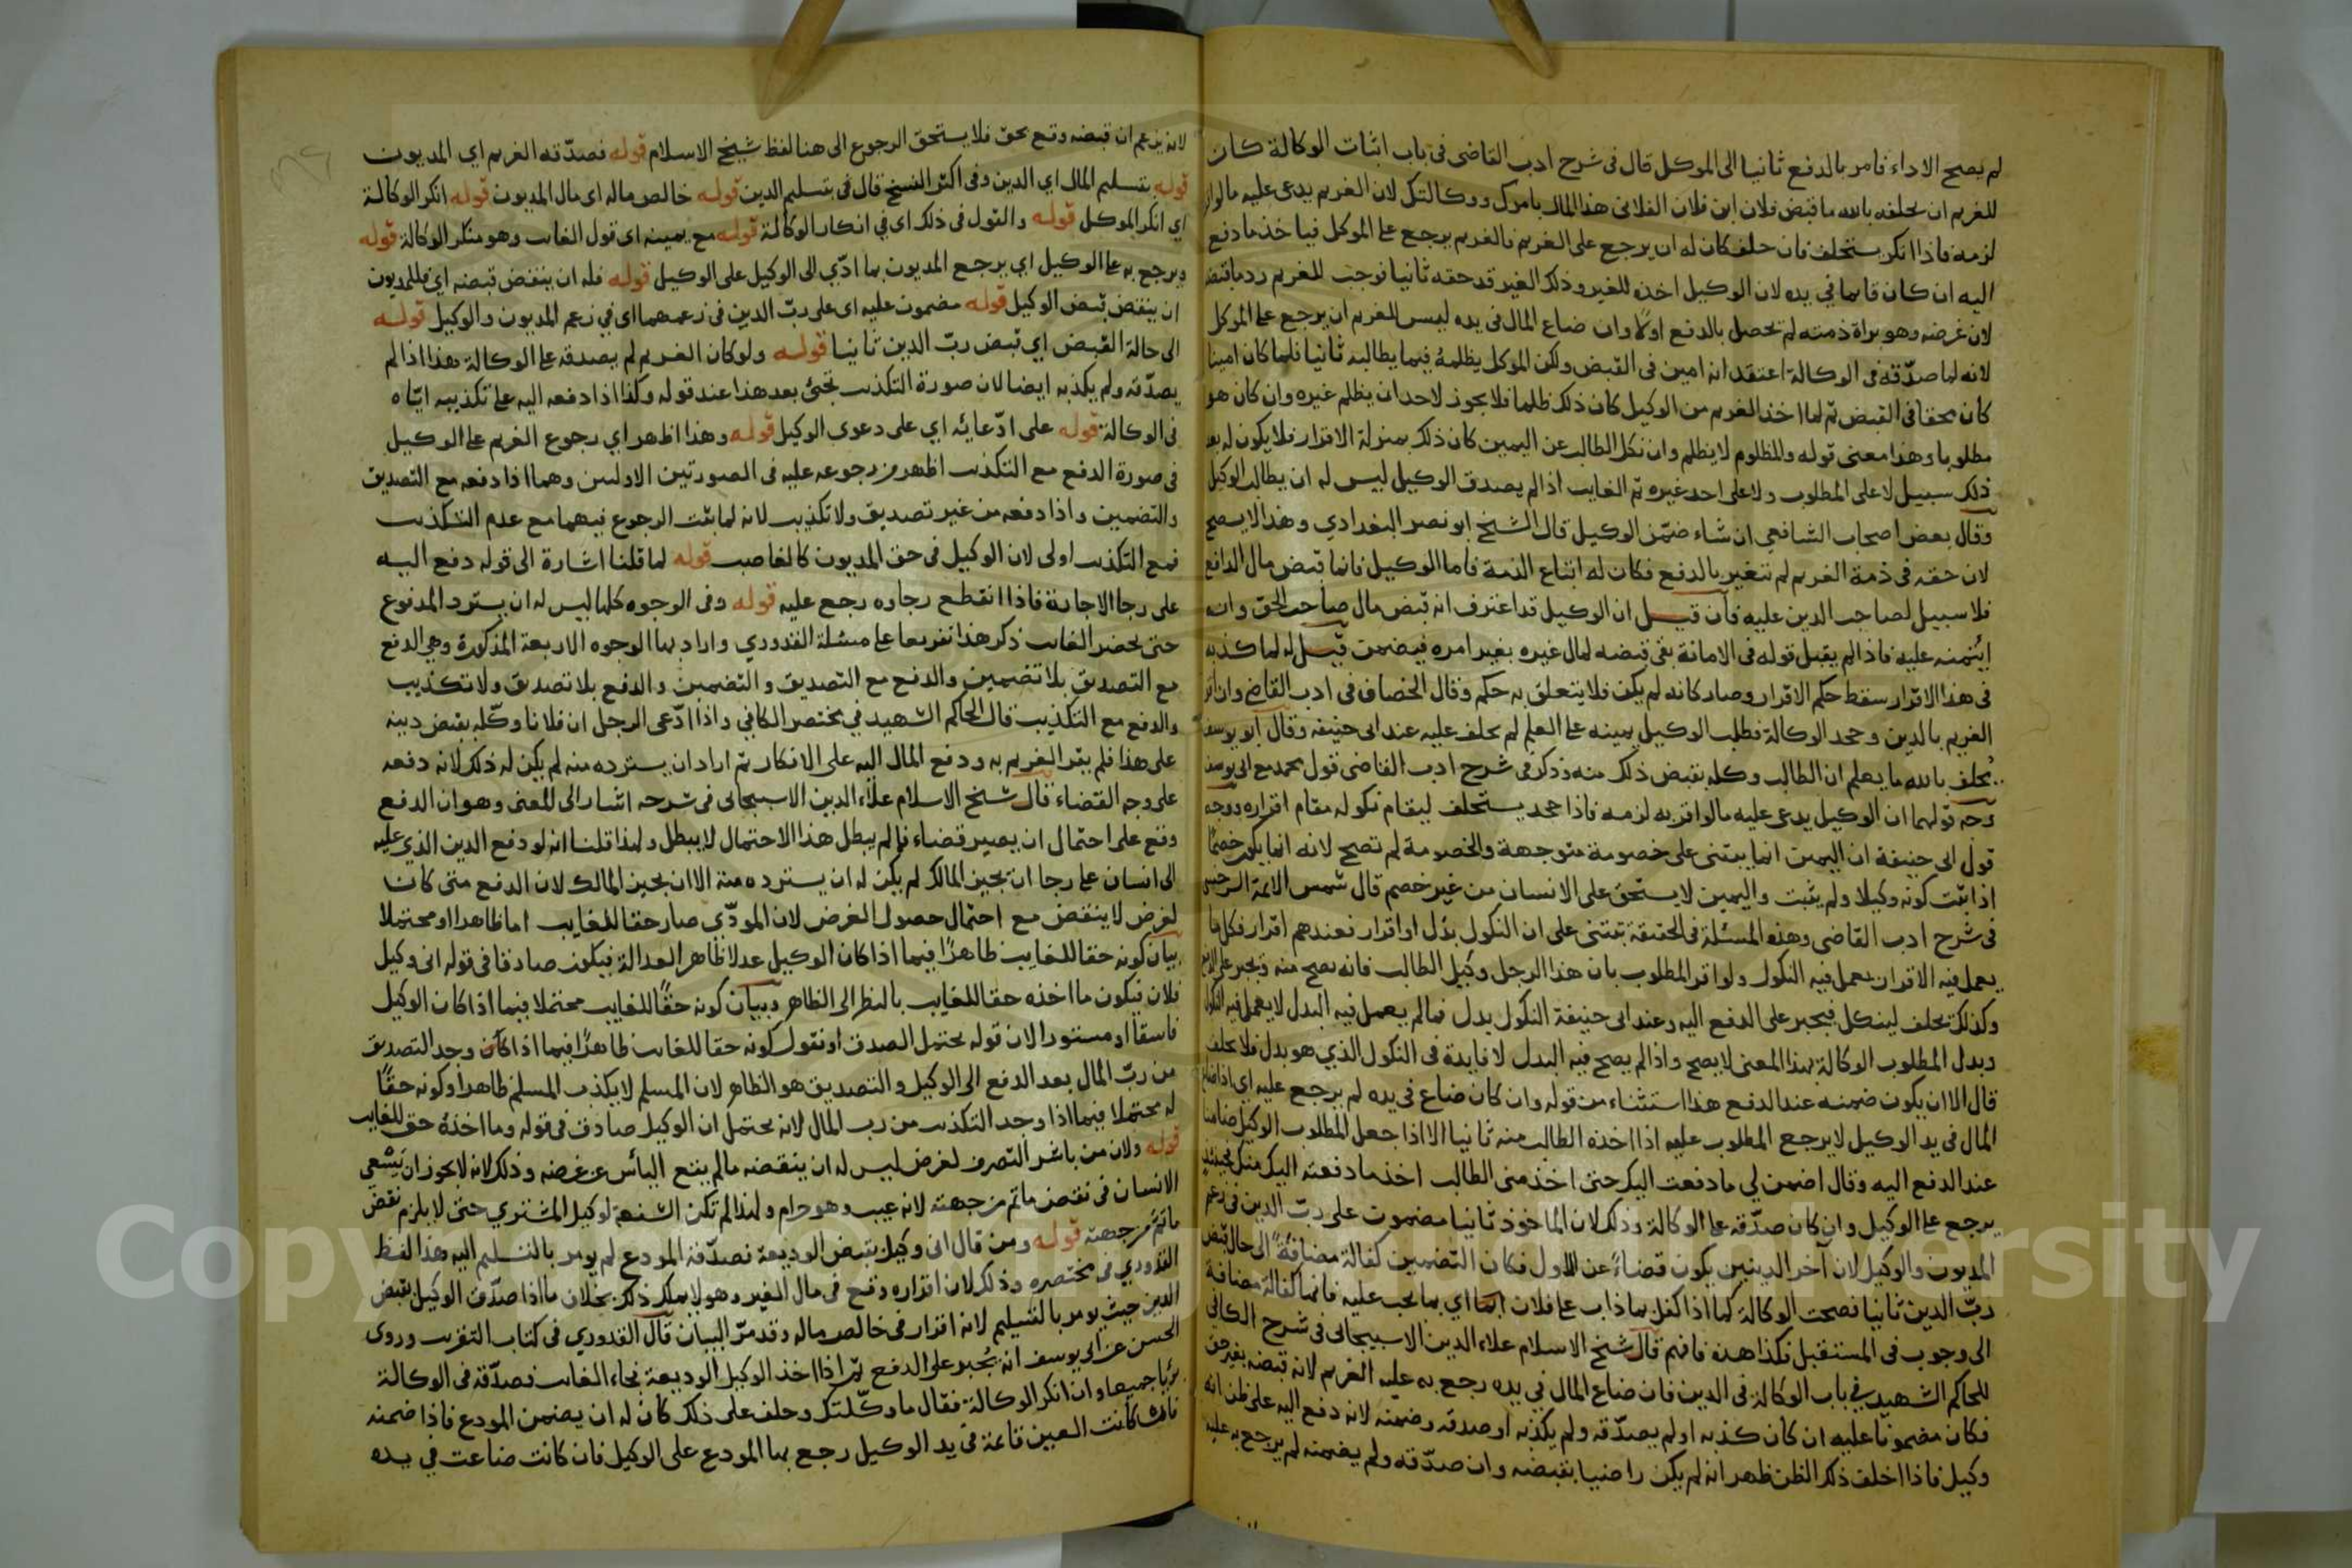 لم يصح الاداء فامر بالدفع ثانيا الى الموكل قال في شرح ادب القاضي في باب اثبات الوكالة كان
للغريم ان يحلفه بالله ما قبض فلان ابن فلان الفلاني هذا المال بامرك ووكالتك لان الغريم يدعي عليه ما لو اقر
لزمه فاذا انكر يستحلف فان حلف كان له ان يرجع على الغريم فالغريم يرجع على الموكل فياخذ ما دفع
اليه ان كان قايما في يده لان الوكيل اخذه للغير وذلك الغير قد حقه ثانيا فوجب للغريم رد ما قبض
لان غرضه وهو براة ذمته لم تحصل بالدفع اولا وان ضاع المال في يده ليس للغريم ان يرجع على الموكل
لانه لما صدقه في الوكالة اعتقد انه امين في القبض ولكن الموكل يظلمه فيما يطالبه ثانيا فلما كان امينا
كان محقا في القبض ثم لما اخذ الغريم من الوكيل كان ذلك ظلما فلا يجوز لاحد ان يظلم غيره وان كان هو
مظلوما وهذا معنى قوله والمظلوم لا يظلم وان نكل الطالب عن اليمين كان ذلك بمنزلة الاقرار فلا يكون له بعد
ذلك سبيل لا على المطلوب ولا على احد غيره ثم الغايب اذا لم يصدق الوكيل ليس له ان يطالب الوكيل
وقال بعض اصحاب الشافعي ان شاء ضمن الوكيل قال الشيخ ابو نصر البغدادي وهذا لا يصح
لان حقه في ذمة الغريم لم تتغير بالدفع فكان له اتباع الذمة فاما الوكيل فانما قبض مال الدافع
فلا سبيل لصاحب الدين عليه فان قيل ان الوكيل قد اعترف انه قبض مال صاحب الحق وانه
ايتمنه عليه فاذا لم يقبل قوله في الامانة بقي قبضه لمال غيره بغير امره فيضمن قيل له لما كذبه
في هذا الاقرار سقط حكم الاقرار وصار كانه لم يكن فلا يتعلق به حكم وقال الخصاف في ادب القاضي وان اقر
الغريم بالدين وجحد الوكالة فطلب الوكيل يمينه على العلم لم يحلف عليه عند ابي حنيفه وقال ابو يوسف
يحلف بالله ما يعلم ان الطالب وكله بقبض ذلك منه وذكر في شرح ادب القاضي قول محمد مع ابي يوسف
وجه قولهما ان الوكيل يدعي عليه ما لو اقر به لزمه فاذا جحد يستحلف ليقام نكوله مقام اقراره ووجه
قول ابي حنيفة ان اليمين انما يبتنى على خصومة متوجهة والخصومة لم تصح لانه انما يكون خصما
اذا ثبت كونه وكيلا ولم يثبت واليمين لا يستحق على الانسان من غير خصم قال شمس الائمة السرخسي
في شرح ادب القاضي وهذه المسئلة في الحقيقة تبتنى على ان النكول بذل او اقرار فعندهم اقرار فكل ما
يعمل فيه الاقرار يعمل فيه النكول ولو اقر المطلوب بان هذا الرجل وكيل الطالب فانه يصح منه ويجبر على الدفع
وكذلك يحلف لينكل فيجبر على الدفع اليه وعند ابي حنيفة النكول بدل فما لم يعمل فيه البدل لا يعمل فيه النكول
وبدل المطلوب الوكالة بهذا المعنى لا يصح واذا لم يصح فيه البدل لا فايدة في النكول الذي هو بدل فلا يحلف
قال الا ان يكون ضمنه عند الدفع هذا استثناء من قوله وان كان ضاع في يده لم يرجع عليه اي اذا ضاع
المال في يد الوكيل لا يرجع المطلوب عليه اذا اخذه الطالب منه ثانيا الا اذا جعل المطلوب الوكيل ضامنا
عند الدفع اليه وقال اضمن لي ما دفعت اليك حتى اخذ مني الطالب اخذ ما دفعته اليك منك فحينئذ
يرجع على الوكيل وان كان صدقه على الوكالة وذلك لان الماخوذ ثانيا مضمون على رب الدين في زعم
المديون والوكيل لان آخر الدينين يكون قضاء عن الاول فكان التضمين كفالة مضافة الى حال قبض
رب الدين ثانيا فصحت الوكالة كما اذا كفل بما ذاب على فلان اي بما يجب عليه فانما كفالة مضافة
الى وجوب في المستقبل فكذا هذه فافهم قال شيخ الاسلام علاء الدين الاسبيجابي في شرح الكافي
للحاكم الشهيد في باب الوكالة في الدين فان ضاع المال في يده رجع به عليه الغريم لانه قبضه بغير حق
فكان مضمونا عليه ان كان كذبه او لم يصدقه ولم يكذبه او صدقه وضمنه لانه دفع اليه على ظن انه
وكيل فاذا اخلف ذلك الظن ظهر انه لم يكن راضيا بقبضه وان صدقه ولم يضمنه لم يرجع به عليه
لانه يزعم ان قبضه وقع بحق فلا يستحق الرجوع الى هنا لفظ شيخ الاسلام قوله فصدقه الغريم اي المديون
قوله بتسليم المال اي الدين وفي اكثر النسخ قال في بتسليم الدين قوله خالص ماله اي مال المديون قوله انكر الوكالة
اي انكر الموكل قوله والقول في ذلك اي في انكار الوكالة قوله مع يمينه اي قول الغايب وهو منكر الوكالة قوله
ويرجع به على الوكيل اي يرجع المديون بما ادى الى الوكيل على الوكيل قوله فله ان ينقض قبضه اي فللمديون
ان ينقض قبض الوكيل قوله مضمون عليه اي على رب الدين في زعمهما اي في زعم المديون والوكيل قوله
الى حالة القبض اي قبض رب الدين ثانيا قوله ولو كان الغريم لم يصدقه على الوكالة هذا اذا لم
يصدقه ولم يكذبه ايضا لان صورة التكذيب تجئ بعد هذا عند قوله وكذا اذا دفعه اليه على تكذيبه اياه
في الوكالة قوله على ادعائه اي على دعوى الوكيل قوله وهذا اظهر اي رجوع الغريم على الوكيل
في صورة الدفع مع التكذيب اظهر من رجوعه عليه في الصورتين الاوليين وهما اذا دفعه مع التصديق
والتضمين واذا دفعه من غير تصديق ولا تكذيب لانه لما ثبت الرجوع فيهما مع عدم التكذيب
فمع التكذيب اولى لان الوكيل في حق المديون كالغاصب قوله لما قلنا اشارة الى قوله دفع اليه
على رجا الاجازة فاذا انقطع رجاوه رجع عليه قوله وفي الوجوه كلها ليس له ان يسترد المدفوع
حتى يحضر الغايب ذكر هذا تفريعا على مسئلة القدوري واراد بها الوجوه الاربعة المذكورة وهي الدفع
مع التصديق بلا تضمين والدفع مع التصديق والتضمين والدفع بلا تصديق ولا تكذيب
والدفع مع التكذيب قال الحاكم الشهيد في مختصر الكافي واذا ادعى الرجل ان فلانا وكله بقبض دينه
على هذا فلم يقر الغريم به ودفع المال اليه على الانكار ثم اراد ان يسترده منه لم يكن له ذلك لانه دفعه
على وجه القضاء قال شيخ الاسلام علاء الدين الاسبيجابي في شرحه اشار الى المعنى وهو ان الدفع
وقع على احتمال ان يصير قضاء فما لم يبطل هذا الاحتمال لا يبطل ولهذا قلنا انه لو دفع الدين الذي عليه
الى انسان على رجا ان يجيز المالك لم يكن له ان يسترده منه الا ان يجيز المالك لان الدفع متى كان
لغرض لا ينقض مع احتمال حصول الغرض لان المودى صار حقا للغايب اما ظاهرا او محتملا
بيان كونه حقا للغايب ظاهرا فيما اذا كان الوكيل عدلا ظاهر العدالة فيكون صادقا في قوله اني وكيل
فلان فيكون ما اخذه حقا للغايب بالنظر الى الظاهر وبيان كونه حقا للغايب محتملا فيما اذا كان الوكيل
فاسقا او مستورا لان قوله يحتمل الصدق او نقول كونه حقا للغايب ظاهرا فيما اذا كان وجد التصديق
من رب المال بعد الدفع الى الوكيل والتصديق هو الظاهر لان المسلم لا يكذب المسلم ظاهرا وكونه حقا
له محتملا فيما اذا وجد التكذيب من رب المال لانه يحتمل ان الوكيل صادق في قوله وما اخذه حق للغايب
قوله ولان من باشر التصرف لغرض ليس له ان ينقضه ما لم يقع اليأس عن غرضه وذلك لانه لا يجوز ان يسعى
الانسان في نقض ما تم من جهته لانه عيب وهو حرام ولهذا لم تكن الشفعة لوكيل المشتري حتى لا يلزم نقض
ما تم من جهته قوله ومن قال اني وكيل بقبض الوديعة فصدقه المودع لم يومر بالتسليم اليه هذا لفظ
القدوري في مختصره وذلك لان اقراره وقع في مال الغير وهو لا يملك ذلك بخلاف ما اذا صدق الوكيل بقبض
الدين حيث يومر بالتسليم لانه اقرار في خالص ماله وقد مر البيان قال القدوري في كتاب التقريب وروى
الحسن عن ابي يوسف انه يجبر على الدفع ثم اذا اخذ الوكيل الوديعة فجاء الغايب فصدقه في الوكالة
برئا جميعا وان انكر الوكالة فقال ما وكلتك وحلف على ذلك كان له ان يضمن المودع فاذا ضمنه
فان كانت العين قائمة في يد الوكيل رجع بها المودع على الوكيل فان كانت ضاعت في يده